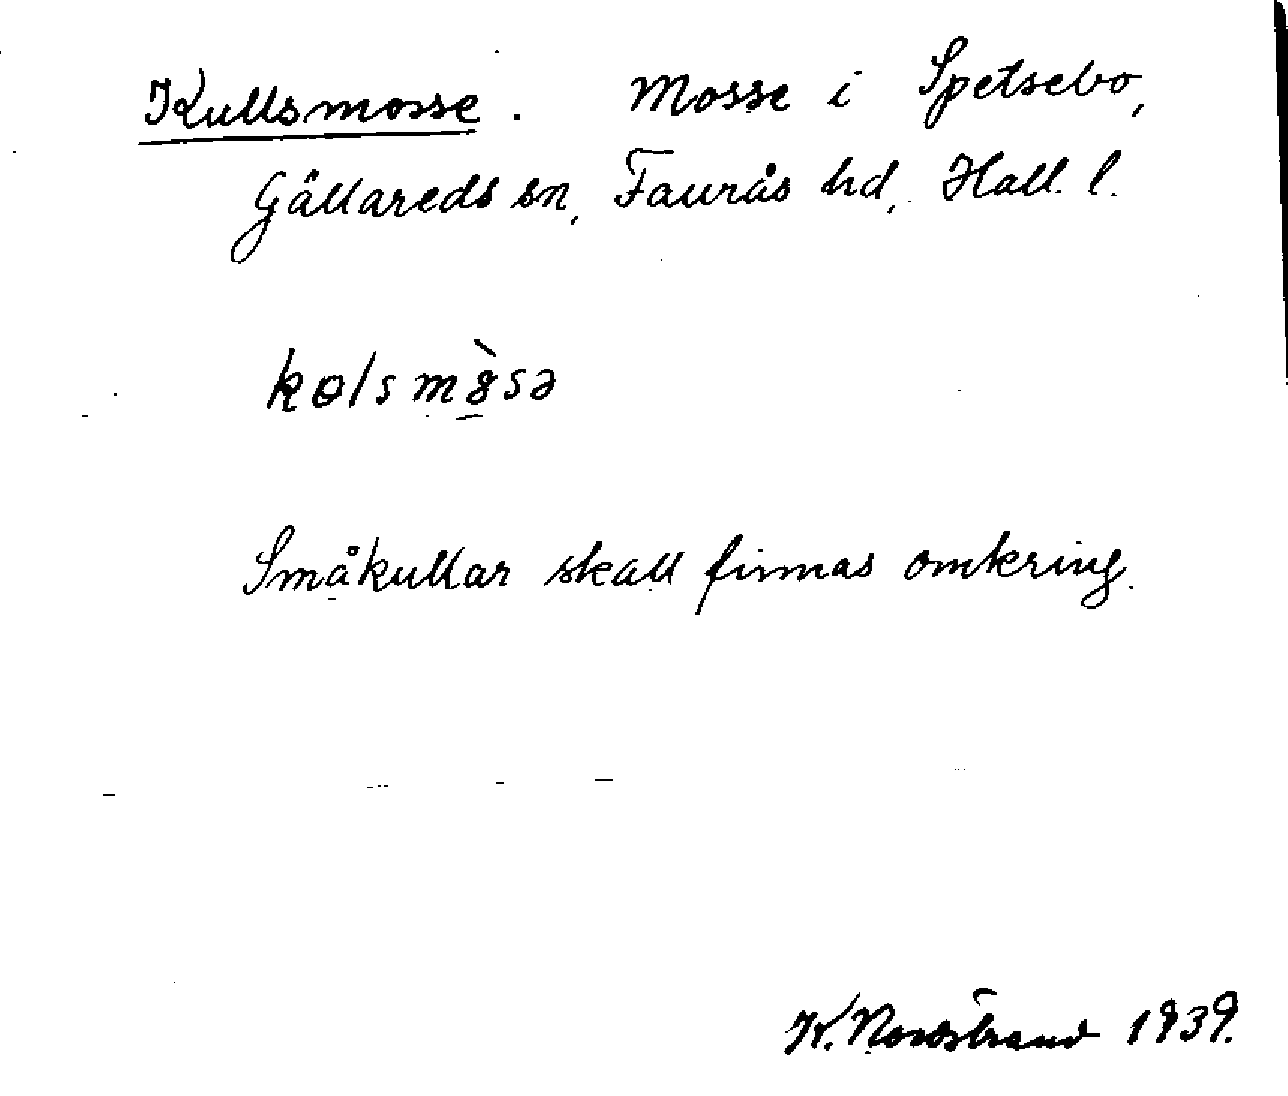 Kullsmosse. Mosse i Spetsebo,
Gällareds sn, Faurås hd, Hall. l.
kɵlsmòsə
Småkullar skall finnas omkring.
K. Nordstrand 1939.